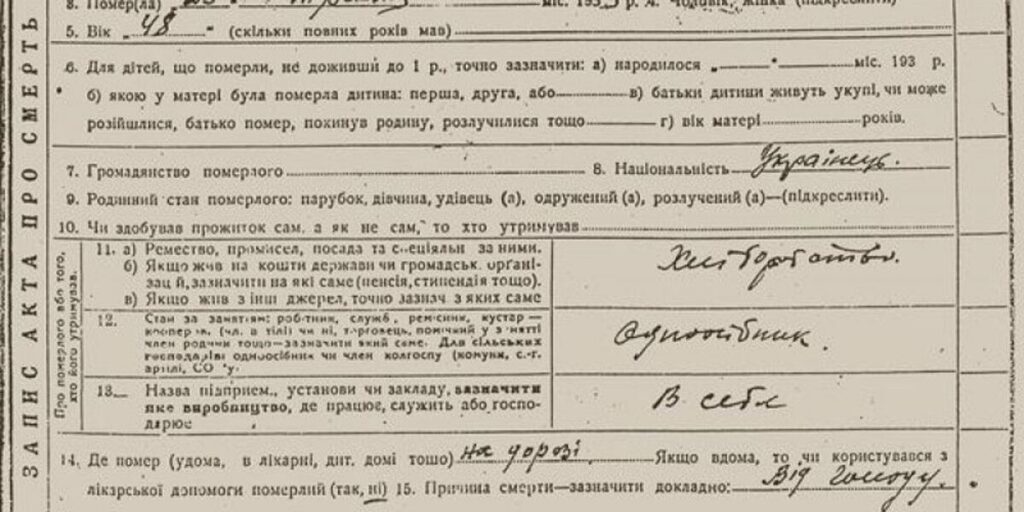 8. Помер(ла) міс. 193 р. А. Чоловік, жінка (підкреслити)
5. Вік „ 48 " (скільки повних років мав)
6. Для дітей, що померли, не доживші до 1 р., точно зазначити: а) народилося „ " міс. 193 р.
б) якою у матері була померла дитина: перша, друга, або в) батьки дитини живуть укупі, чи може
розійшлися, батько помер, покинув родину, розлучилися тощо г) вік матері років.
7. Громадянство померлого 8. Національність Українець.
9. Родинний стан померлого: парубок, дівчина, удівець (а), одружений (а), розлучений (а)—(підкреслити).
10. Чи здобував прожиток сам, а як не сам, то хто утримував
Про померлого або того, хто його утримував.
11. а) Ремество, промисел, посада та спеціяльн за ними.
б) Якщо жив на кошти держави чи громадськ. органі-
зац й, зазначити на які саме (пенсія, стипендія тощо).
в) Якщо жив з інш джерел, точно зазнач з яких саме
Хліборобство.
12. Стан за заняттям: робітник, служб , ремісник, кустар—
кооперов. (чл. артілі) чи ні, торговець, помічний у занятті
член родини тощо—зазначити який саме. Для сільських
господарів одноосібник чи член колгоспу (комуни, с.-г.
артілі, СО у
Одноосібник.
13. Назва підприєм., установи чи закладу, зазначити
яке виробництво, де працює, служить або госпо-
дарює
В себе
14. Де помер (удома, в лікарні, дит. домі тощо) на дорозі Якщо вдома, то чи користувався з
лікарської допомоги померлий (так, ні) 15. Причина смерти—зазначити докладно: Від голоду.
ЗАПИС АКТА ПРО СМЕРТЬ